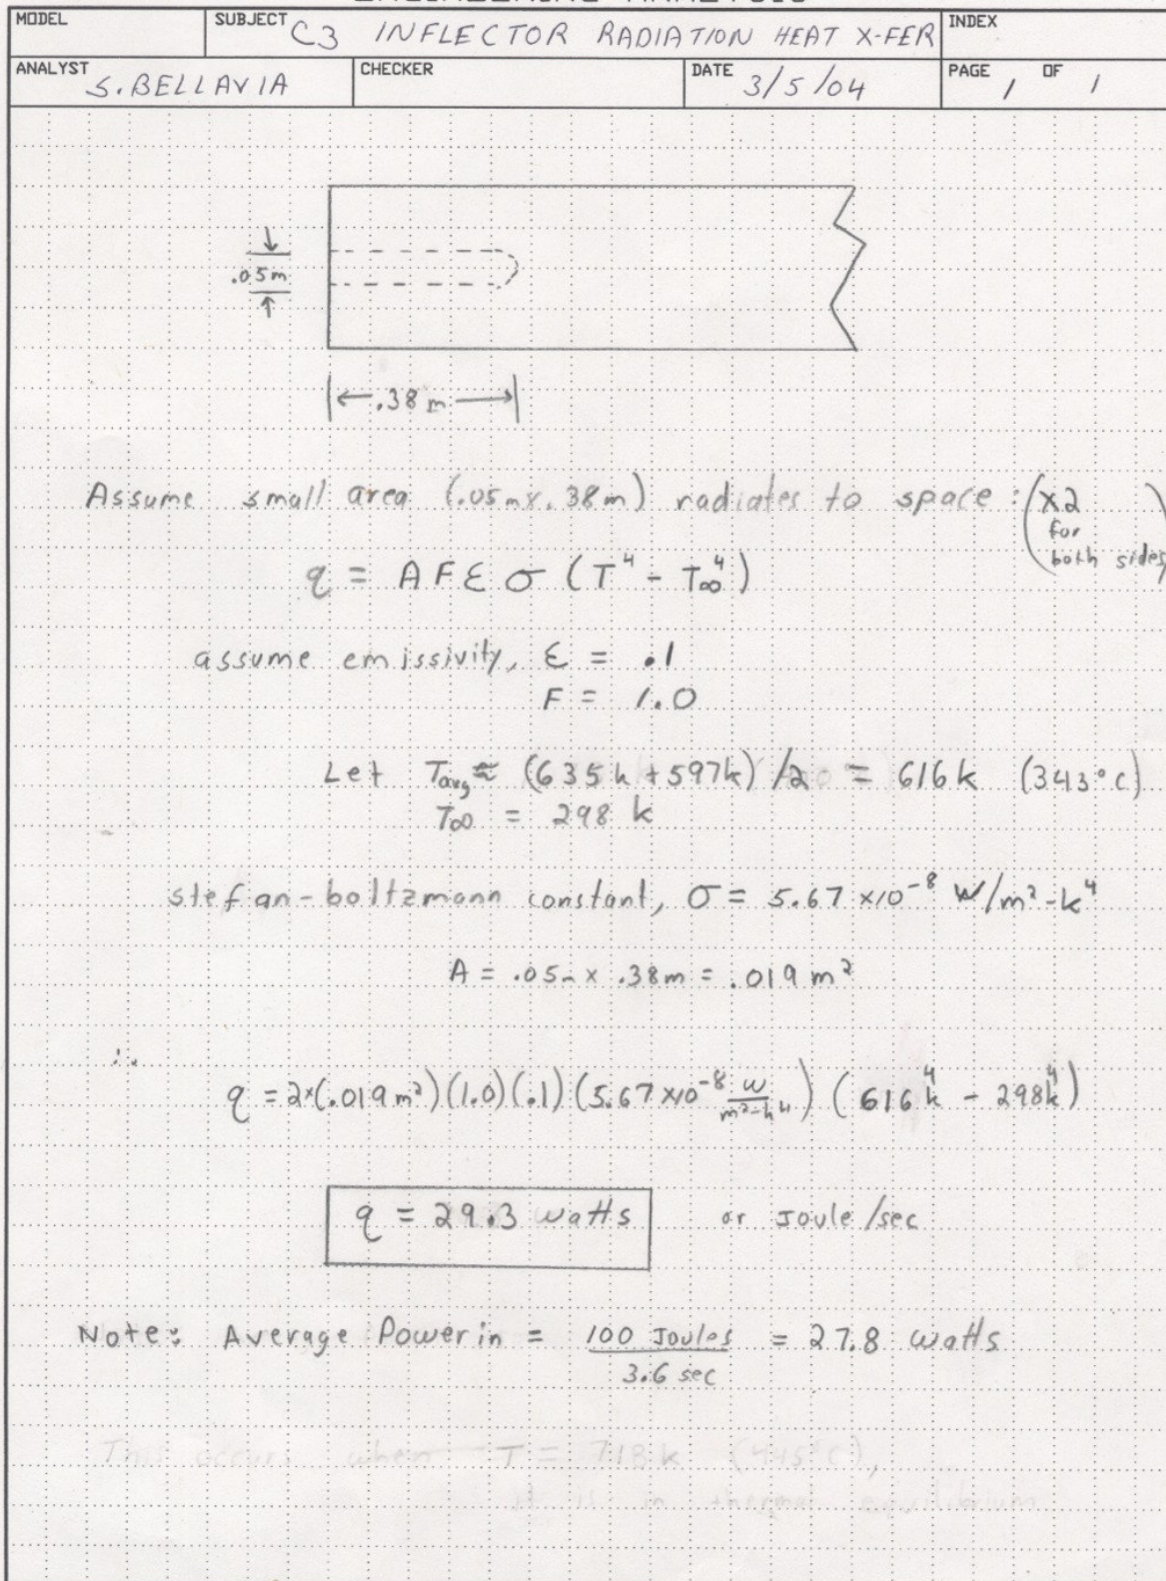 MODEL
SUBJECT C3 INFLECTOR RADIATION HEAT X-FER
INDEX
ANALYST S. BELLAVIA
CHECKER
DATE 3/5/04
PAGE 1 OF 1
.05m
.38 m
Assume small area (.05m x .38m) radiates to space : (x2
for
both sides)
q = A F ε σ (T⁴ - T∞⁴)
assume emissivity, ε = .1
F = 1.0
Let Tavg ≈ (635k + 597k) /2 = 616k (343°C)
T∞ = 298 k
stefan-boltzmann constant, σ = 5.67 x10⁻⁸ W/m²-k⁴
A = .05m x .38m = .019 m²
∴
q = 2x(.019m²)(1.0)(.1)(5.67 x10⁻⁸ w/m²-k⁴) (616k⁴ - 298k⁴)
q = 29.3 watts or Joule/sec
Note: Average Power in = 100 Joules / 3.6 sec = 27.8 watts
This occurs when T = 718k (445°C),
it is in thermal equilibrium